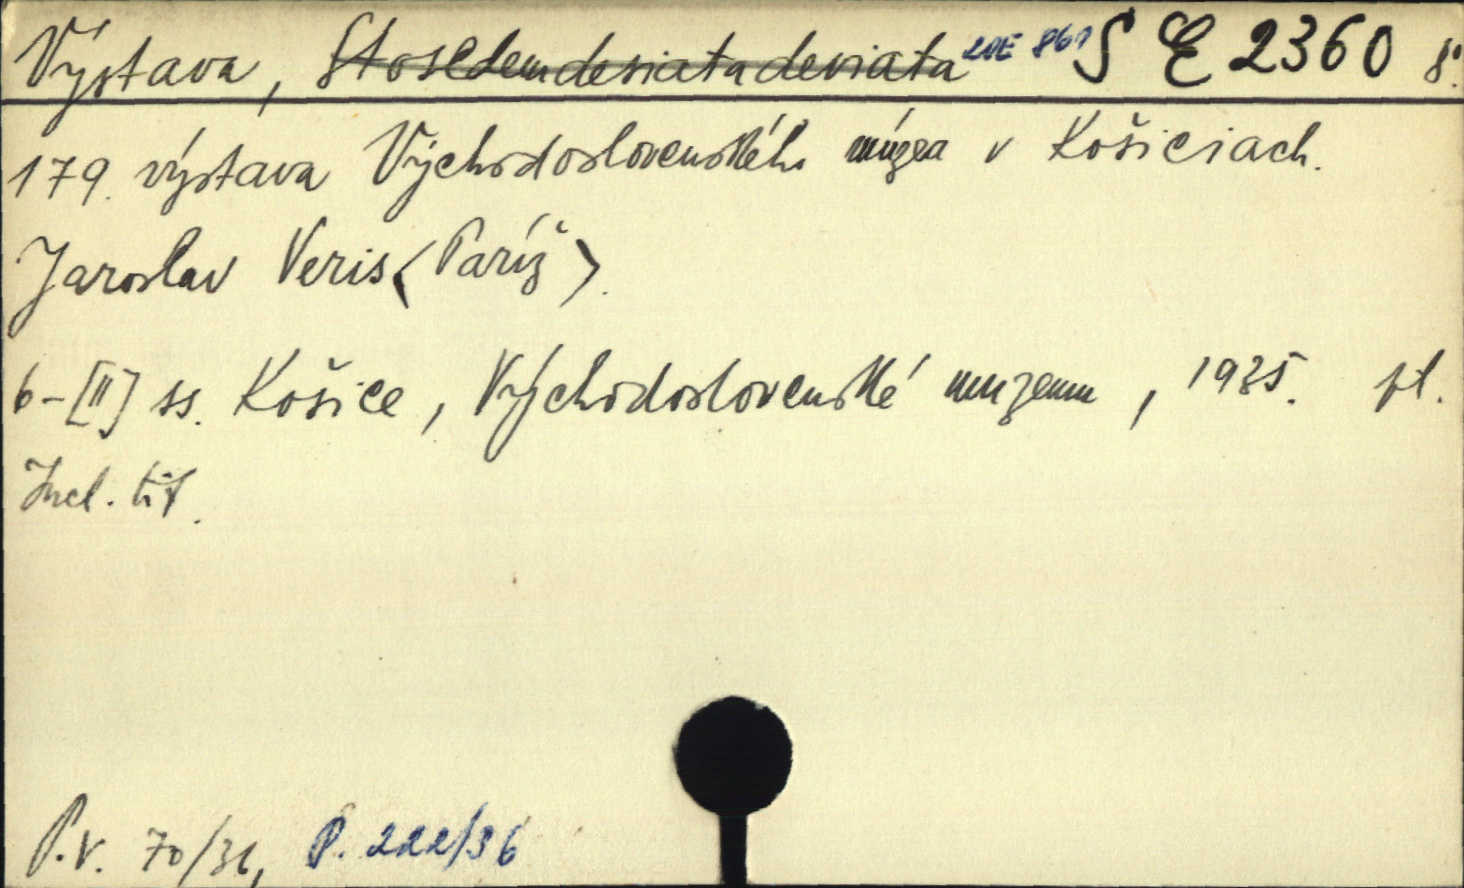 Výstava, Stosedemdesiatadeviata S E 2360 8°.
179. výstava Východoslovenského múzea v Košiciach.
Jaroslav Veris <Paríž>.
6-[II] ss. Košice, Východoslovenské muzeum, 1935. pl.
Incl. tit.
P.V. 70/36, P. 222/36